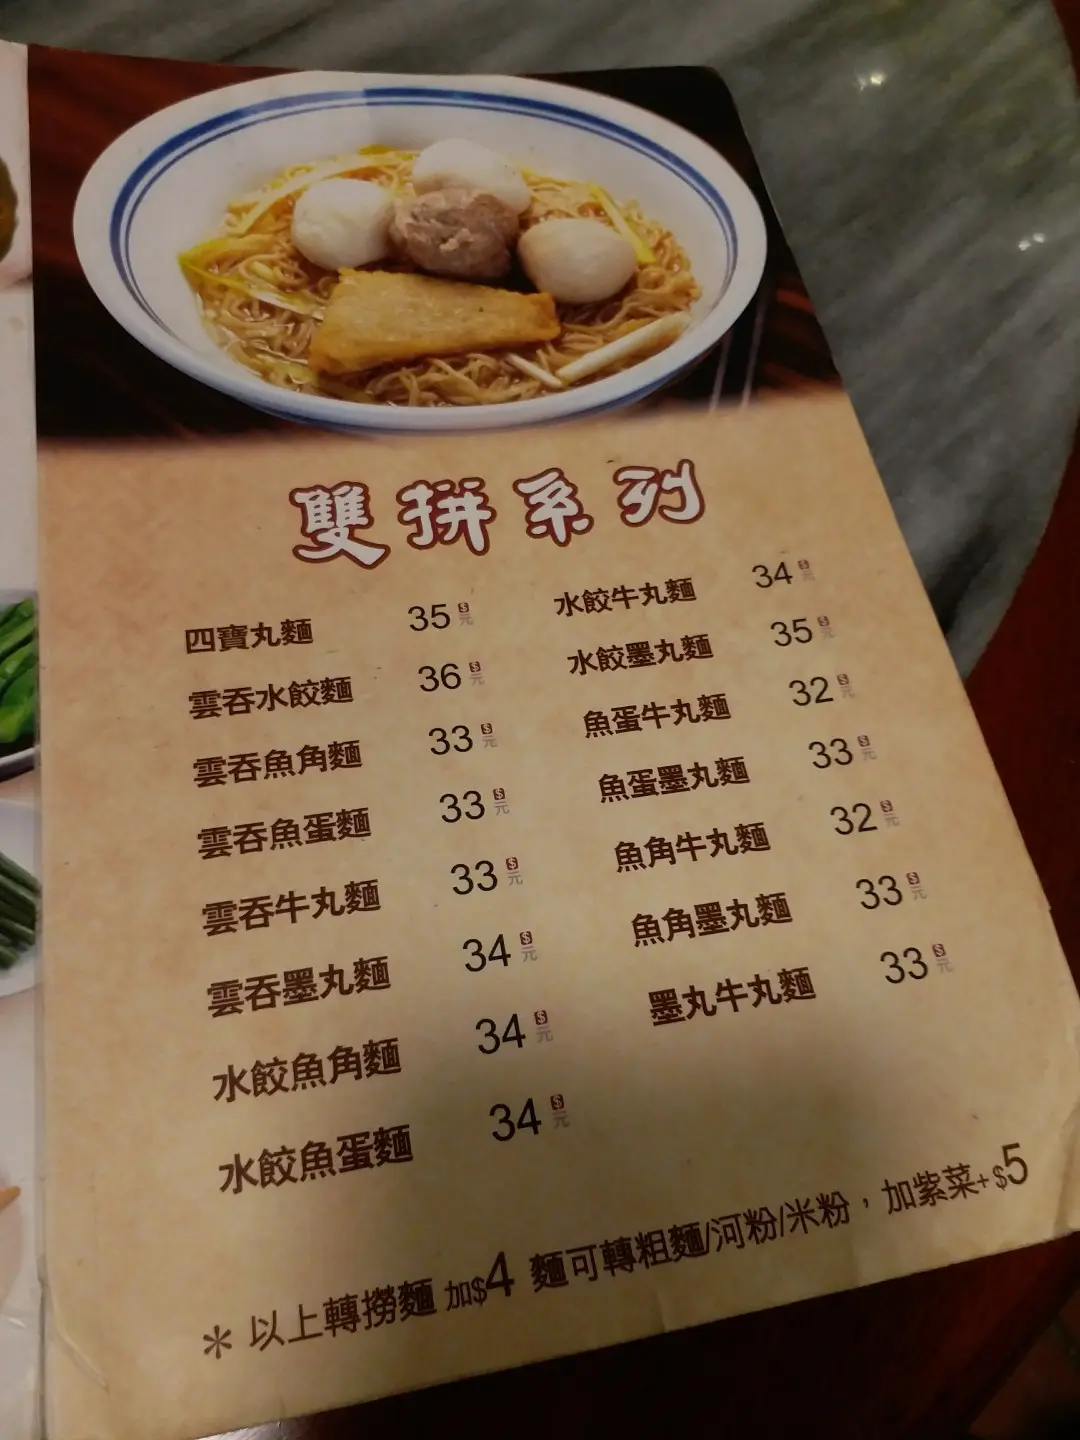 雙拼系列
四寶丸麵 35 $元
雲吞水餃麵 36 $元
雲吞魚角麵 33 $元
雲吞魚蛋麵 33 $元
雲吞牛丸麵 33 $元
雲吞墨丸麵 34 $元
水餃魚角麵 34 $元
水餃魚蛋麵 34 $元
水餃牛丸麵 34 $元
水餃墨丸麵 35 $元
魚蛋牛丸麵 32 $元
魚蛋墨丸麵 33 $元
魚角牛丸麵 32 $元
魚角墨丸麵 33 $元
墨丸牛丸麵 33 $元
＊以上轉撈麵 加$4 麵可轉粗麵/河粉/米粉，加紫菜+$5